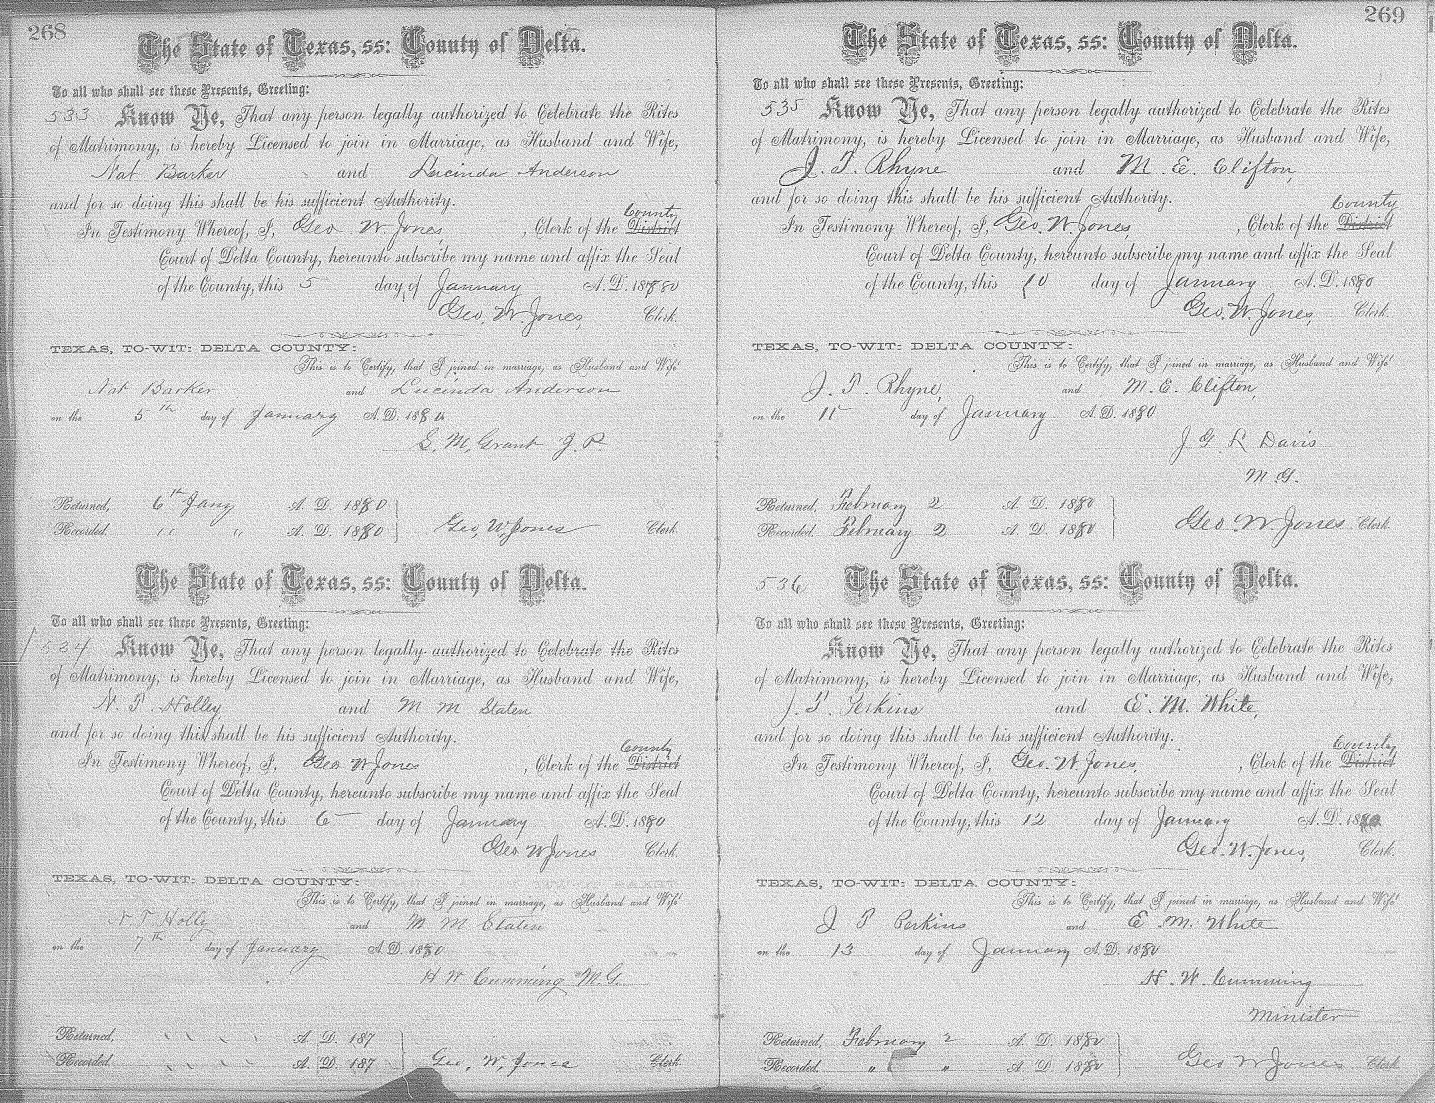 268
The State of Texas, ss: County of Delta.
To all who shall see these Presents, Greeting:
533 Know Ye, That any person legally authorized to Celebrate the Rites
of Matrimony, is hereby Licensed to join in Marriage, as Husband and Wife,
Nat Barker and Lucinda Anderson
and for so doing this shall be his sufficient Authority.
County
In Testimony Whereof, I, Geo W Jones, , Clerk of the District
Court of Delta County, hereunto subscribe my name and affix the Seal
of the County, this 5 day of January A. D. 1880
Geo. W. Jones, Clerk.
TEXAS, TO-WIT: DELTA COUNTY:
This is to Certify, that I joined in marriage, as Husband and Wife
Nat Barker and Lucinda Anderson
on the 5th day of January A. D. 1880
S. M. Grant J. P.
Returned, 6th Jany A. D. 1880
Recorded. " " A. D. 1880 Geo, W, Jones Clerk
The State of Texas, ss: County of Delta.
To all who shall see these Presents, Greeting:
534 Know Ye, That any person legally authorized to Celebrate the Rites
of Matrimony, is hereby Licensed to join in Marriage, as Husband and Wife,
N. T. Holley and M M Staten
and for so doing this shall be his sufficient Authority.
County
In Testimony Whereof, I, Geo W Jones , Clerk of the District
Court of Delta County, hereunto subscribe my name and affix the Seal
of the County, this 6 day of January A. D. 1880
Geo W Jones Clerk.
TEXAS, TO-WIT: DELTA COUNTY:
This is to Certify, that I joined in marriage, as Husband and Wife
N T Holly and M M Staten
on the 7th day of January A. D. 1880
H W Cumming M. G.
Returned, " " " " A. D. 187
Recorded. " " " " A. D. 187 Geo, W, Jones Clerk
269
The State of Texas, ss: County of Delta.
To all who shall see these Presents, Greeting:
535 Know Ye, That any person legally authorized to Celebrate the Rites
of Matrimony, is hereby Licensed to join in Marriage, as Husband and Wife,
J. T. Rhyne and M. E. Clifton,
and for so doing this shall be his sufficient Authority.
County
In Testimony Whereof, I, Geo. W. Jones, , Clerk of the District
Court of Delta County, hereunto subscribe my name and affix the Seal
of the County, this 10 day of January A. D. 1880
Geo. W. Jones, Clerk.
TEXAS, TO-WIT: DELTA COUNTY:
This is to Certify, that I joined in marriage, as Husband and Wife
J. T. Rhyne, and M. E. Clifton,
on the 11 day of January A. D. 1880
J G L Davis
M. G.
Returned, February 2 A. D. 1880
Recorded. February 2 A. D. 1880 Geo. W Jones Clerk.
536 The State of Texas, ss: County of Delta.
To all who shall see these Presents, Greeting:
Know Ye, That any person legally authorized to Celebrate the Rites
of Matrimony, is hereby Licensed to join in Marriage, as Husband and Wife,
J. P. Perkins and E. M. White,
and for so doing this shall be his sufficient Authority.
County
In Testimony Whereof, I, Geo. W Jones, , Clerk of the District
Court of Delta County, hereunto subscribe my name and affix the Seal
of the County, this 12 day of January A. D. 1880
Geo. W. Jones, Clerk.
TEXAS, TO-WIT: DELTA COUNTY:
This is to Certify, that I joined in marriage, as Husband and Wife
J P Perkins and E. M. White
on the 13 day of January A. D. 1880
H. W. Cumming
Minister
Returned, February 2 A. D. 1880
Recorded. " " A. D. 1880 Geo W Jones Clerk